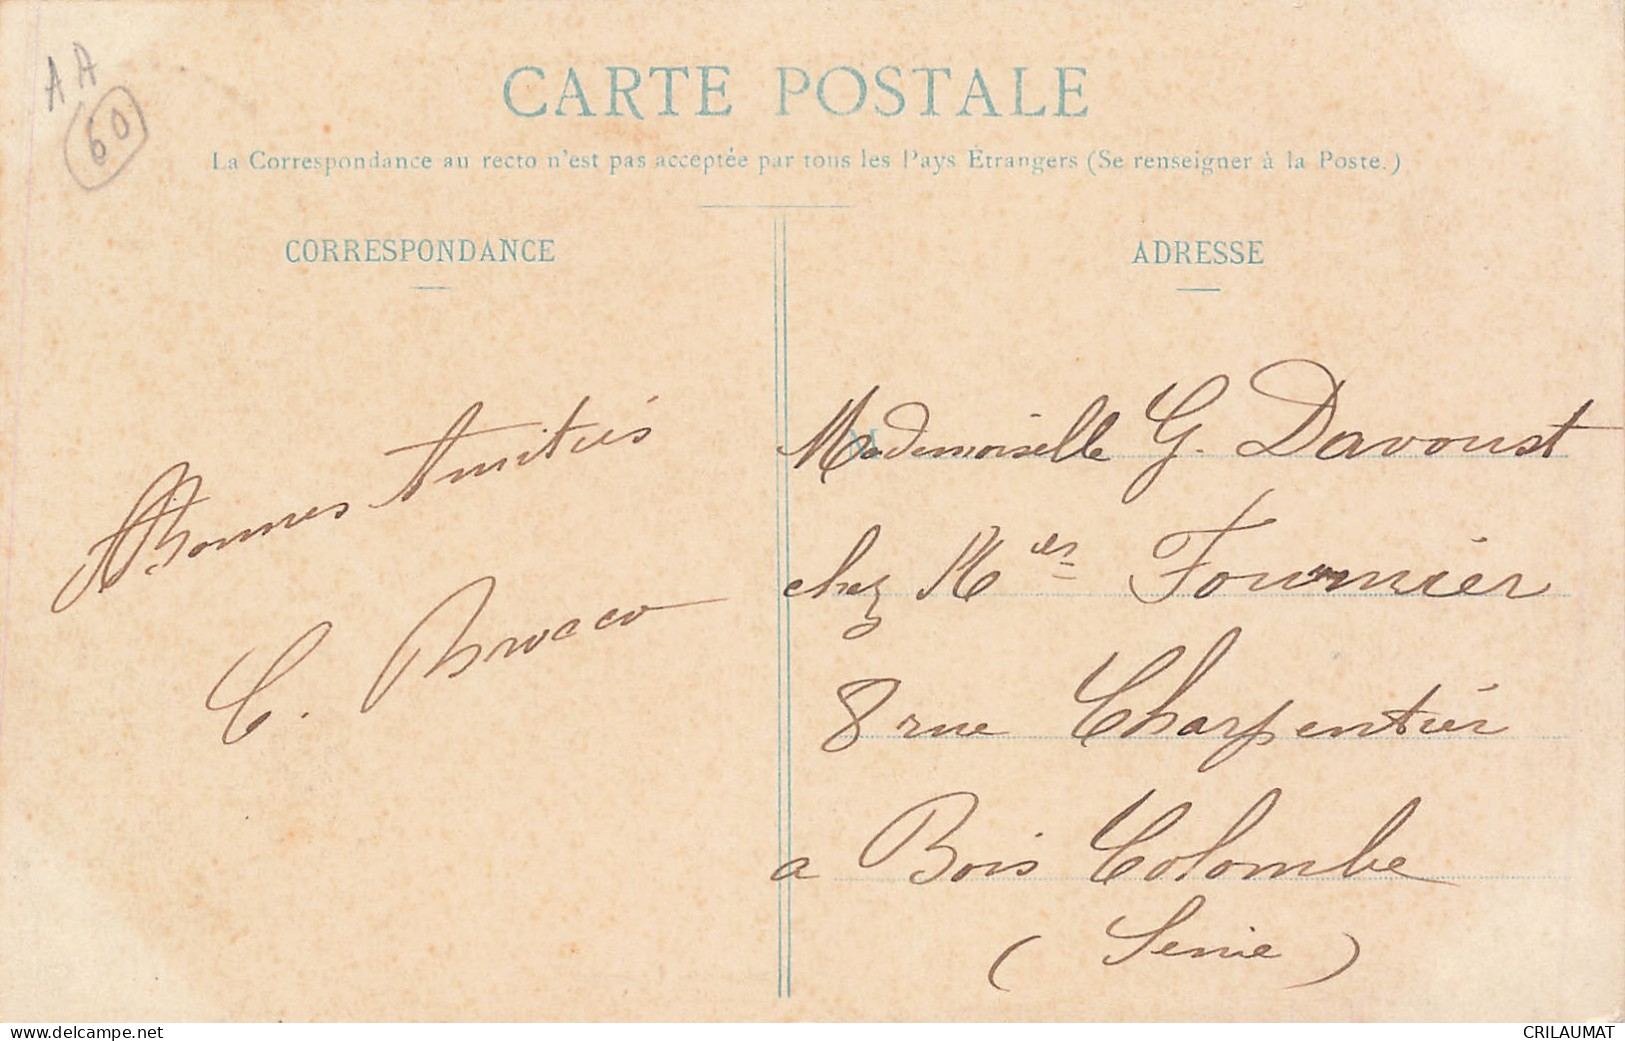 AA
60
CARTE POSTALE
La Correspondance au recto n'est pas acceptée par tous les Pays Étrangers (Se renseigner à la Poste.)
CORRESPONDANCE
Bonnes Amitiés
C. Brocco
ADRESSE
M
Mademoiselle G. Davoust
chez Mer Fournier
8 rue Charpentier
a Bois Colombe
(Seine)
www.delcampe.net
CRILAUMAT